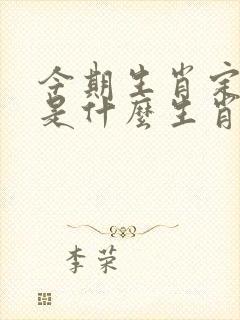 今期生肖定
是什麼生肖
李荣